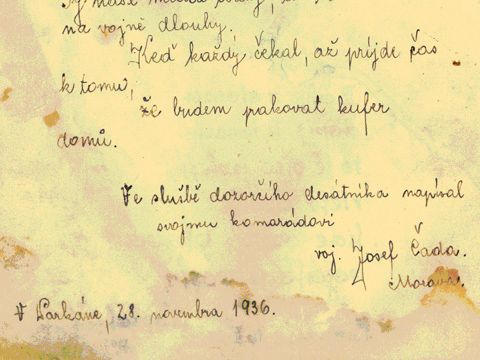 na vojně dlouhý,
Keď každý čekal, až príjde čas
k tomu,
že budem pakovat kufer
domů.
Ve službě dozorčího desátnika napísal
svojmu kamarádovi
voj. Josef Čada.
Morava.
V Parkáne, 28. novembra 1936.